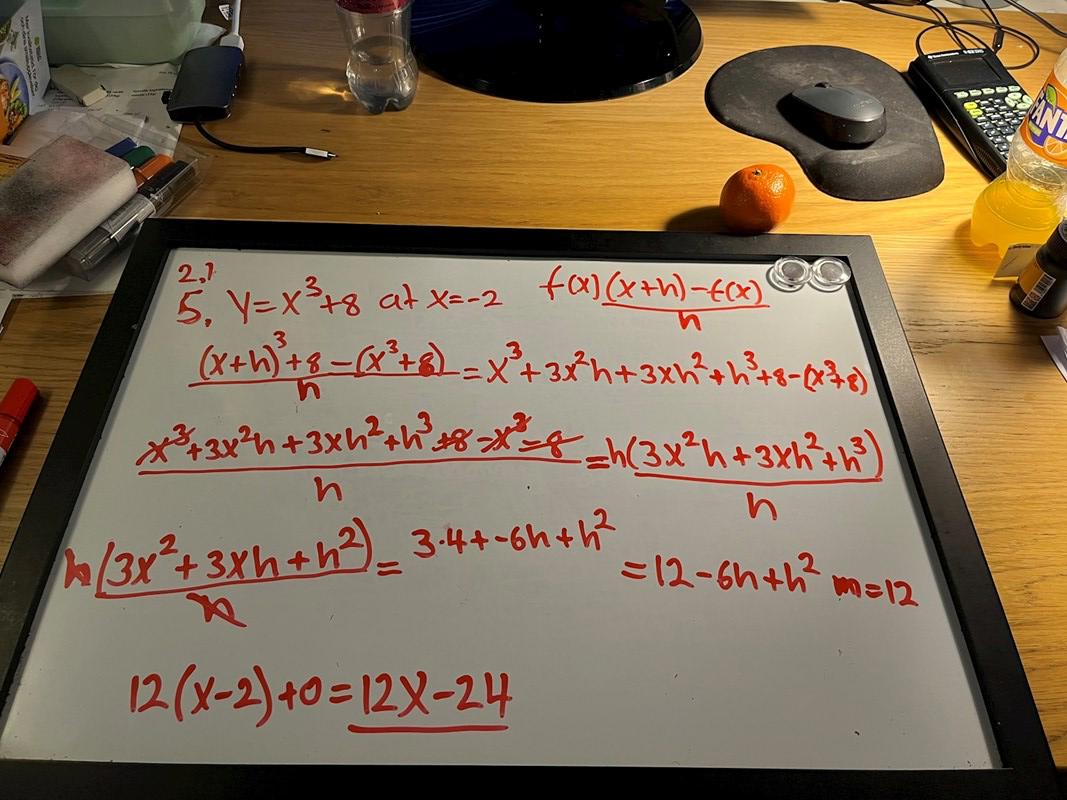 2,1
5, Y=X³+8 at X=-2 f(x)(x+h)-f(x)
h
(x+h)³+8-(x³+8) = x³+3x²h+3xh²+h³+8-(x³+8)
h
x³+3x²h+3xh²+h³+8-x³-8 = h(3x²h+3xh²+h³)
h h
h(3x²+3xh+h²) = 3·4+-6h+h² = 12-6h+h² m=12
h
12(x-2)+0=12X-24
FANT